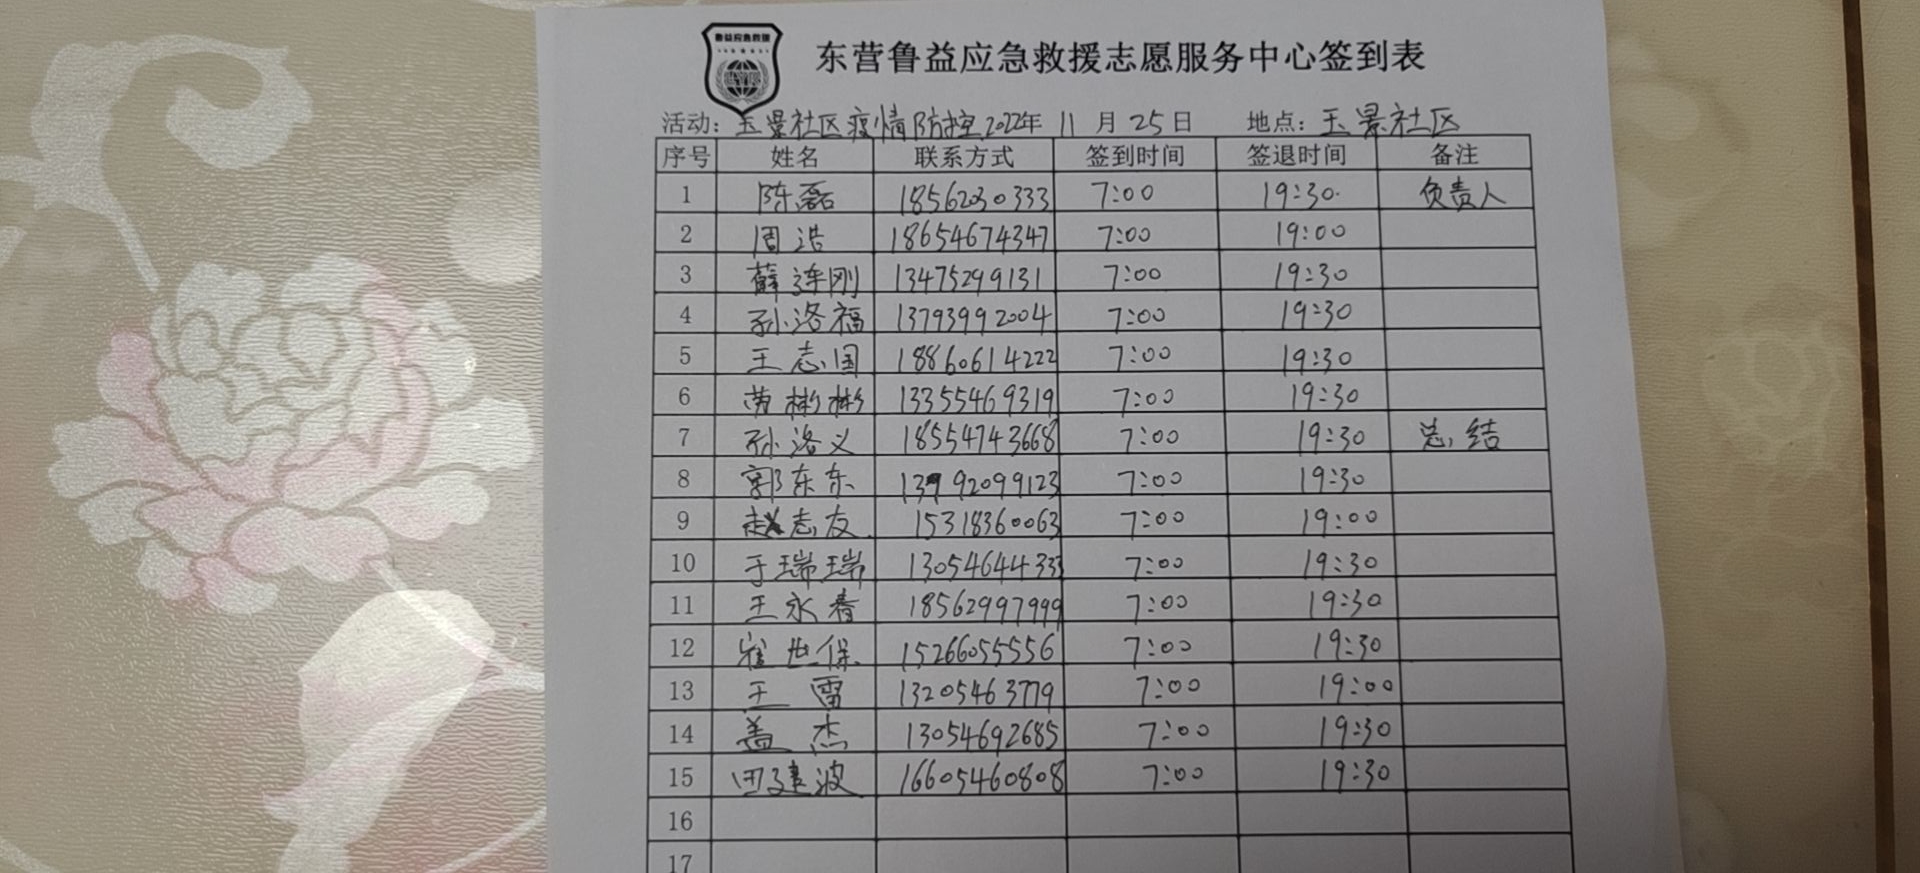 鲁益应急救援
东营鲁益应急救援志愿服务中心签到表
活动: 玉景社区疫情防控 2022年 11 月 25 日 地点: 玉景社区
序号 姓名 联系方式 签到时间 签退时间 备注
1 陈磊 18562030333 7:00 19:30 负责人
2 周浩 18654674347 7:00 19:00
3 薛连刚 13475299131 7:00 19:30
4 孙洛福 13793992004 7:00 19:30
5 王志国 18860614222 7:00 19:30
6 苟彬彬 13355469319 7:00 19:30
7 孙洛义 18554743668 7:00 19:30 总结
8 郭东东 13792099123 7:00 19:30
9 赵志友 15318360063 7:00 19:00
10 于瑞瑞 13054644333 7:00 19:30
11 王永春 18562997999 7:00 19:30
12 崔世保 15266055556 7:00 19:30
13 王雷 13205463779 7:00 19:00
14 盖杰 13054692685 7:00 19:30
15 田建波 16605460808 7:00 19:30
16
17